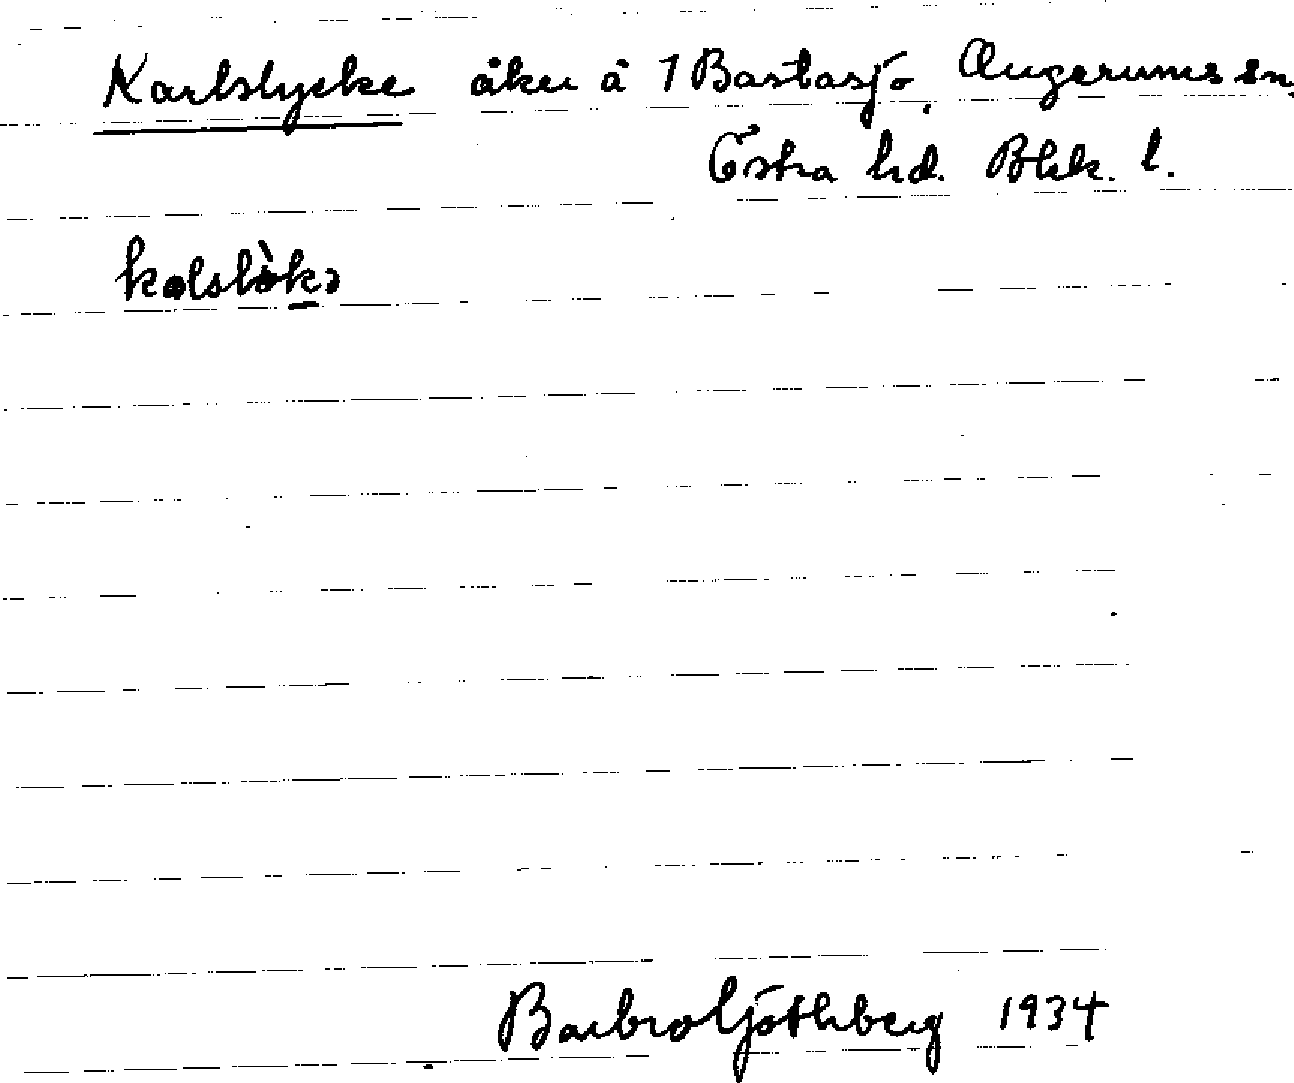 Karlslycke åker å 1 Bastasjö. Augerums sn,
Östra hd. Blek. l.
kalslòkə
Barbro Göthberg 1934